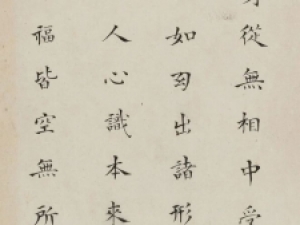 從無相中受
如幻出諸形
人心識本來
福皆空無所